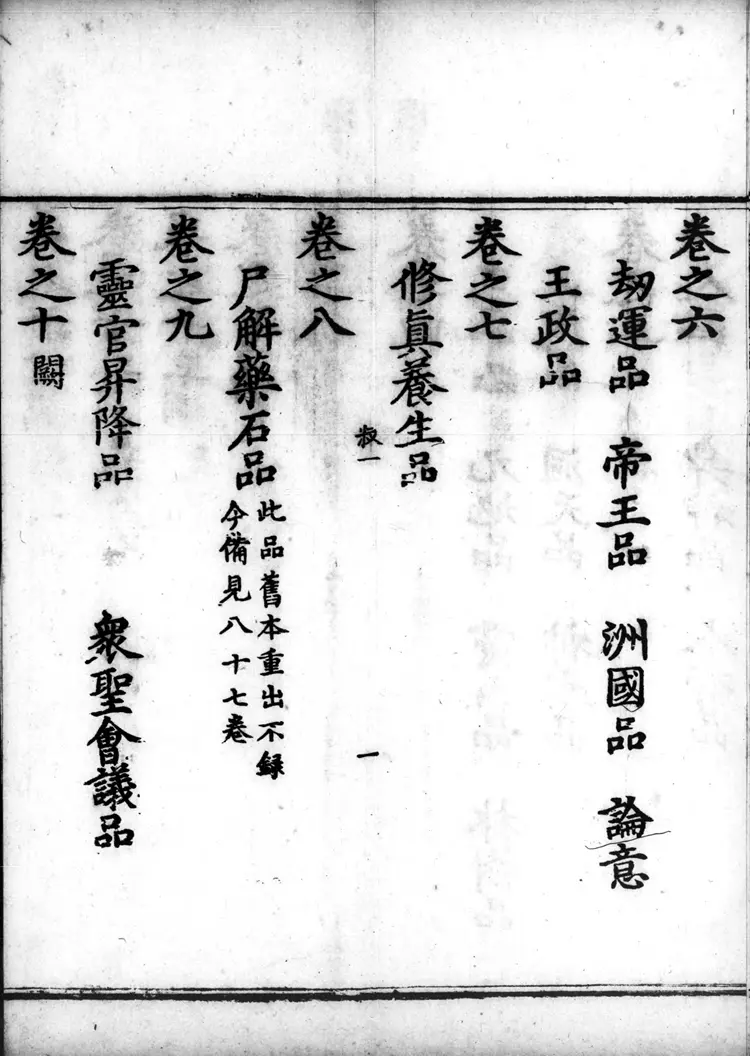 卷之六
劫運品　帝王品　洲國品　論意
王政品
卷之七
修眞養生品
叔一　一
卷之八
尸解藥石品
此品舊本重出不録
今備見八十七卷
卷之九
靈官昇降品　衆聖會議品
卷之十　闕